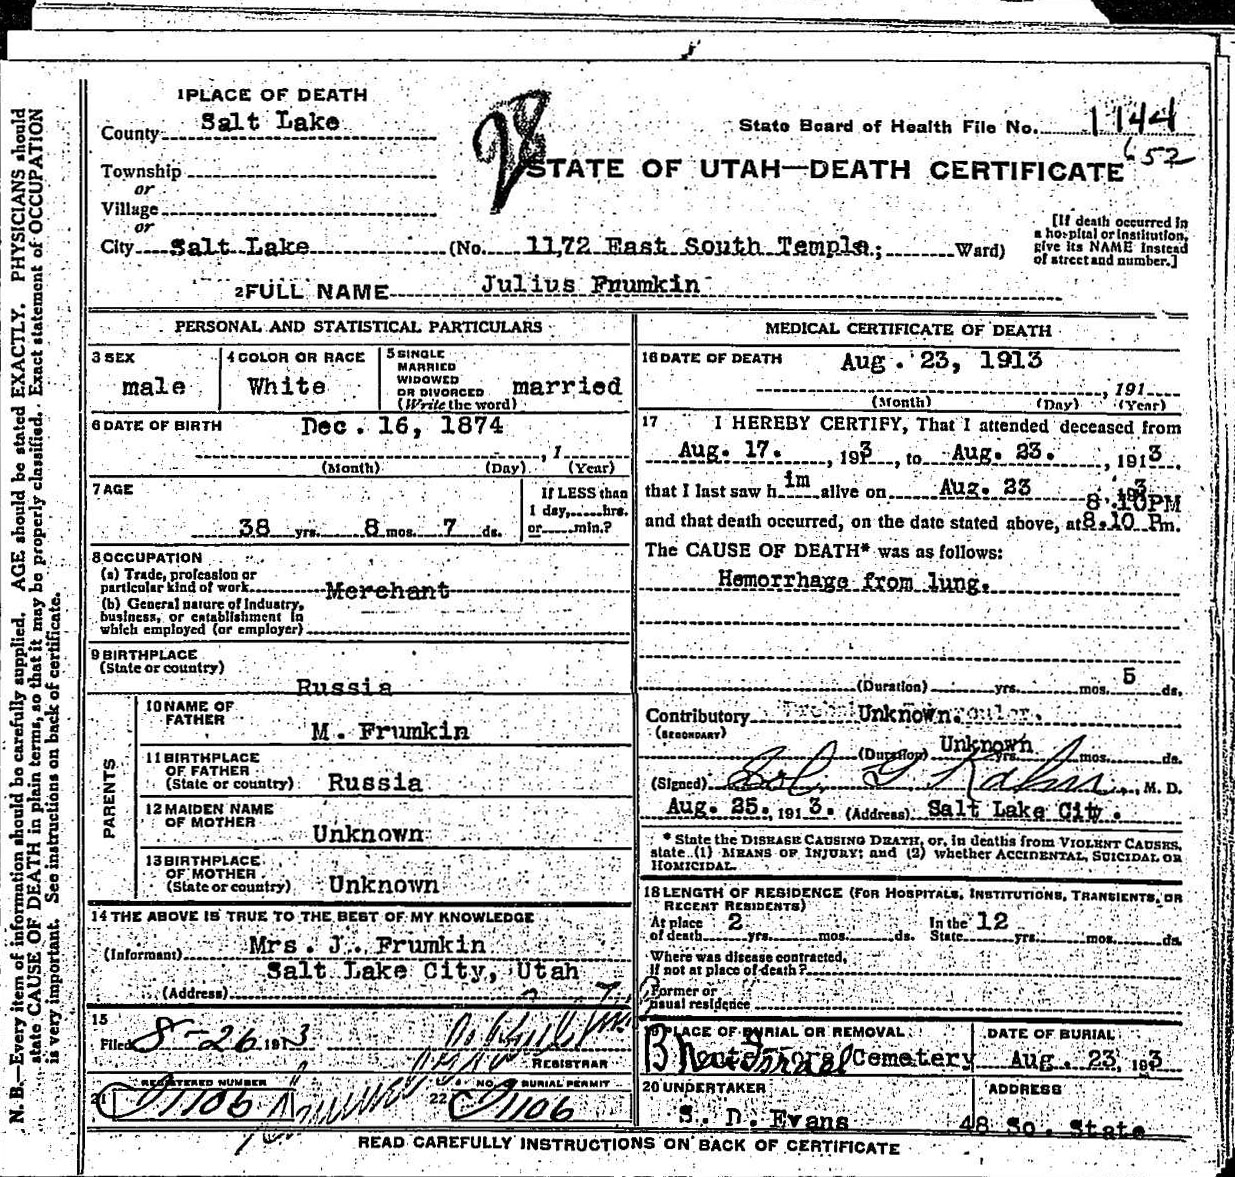 1 PLACE OF DEATH
County Salt Lake
Township
or
Village
or
City Salt Lake (No. 1172 East South Temple.; Ward)
28
State Board of Health File No. 1144
652
STATE OF UTAH—DEATH CERTIFICATE
[If death occurred in
a hospital or institution,
give its NAME instead
of street and number.]
2 FULL NAME Julius Frumkin
PERSONAL AND STATISTICAL PARTICULARS
3 SEX
male
4 COLOR OR RACE
White
5 SINGLE
MARRIED
WIDOWED
OR DIVORCED
(Write the word)
married
6 DATE OF BIRTH Dec. 16, 1874
, 1
(Month) (Day) (Year)
7 AGE
38 yrs. 8 mos. 7 ds.
If LESS than
1 day, hrs.
or min.?
8 OCCUPATION
(a) Trade, profession or
particular kind of work Merchant
(b) General nature of Industry,
business, or establishment in
which employed (or employer)
9 BIRTHPLACE
(State or country)
Russia
PARENTS
10 NAME OF
FATHER
M. Frumkin
11 BIRTHPLACE
OF FATHER
(State or country) Russia
12 MAIDEN NAME
OF MOTHER
Unknown
13 BIRTHPLACE
OF MOTHER
(State or country) Unknown
14 THE ABOVE IS TRUE TO THE BEST OF MY KNOWLEDGE
(Informant) Mrs. J. Frumkin
Salt Lake City, Utah
(Address)
15
Filed 8-26 1913
REGISTRAR
21 REGISTERED NUMBER
1106
22 NO. BURIAL PERMIT
1106
MEDICAL CERTIFICATE OF DEATH
16 DATE OF DEATH Aug. 23, 1913
, 191
(Month) (Day) (Year)
17 I HEREBY CERTIFY, That I attended deceased from
Aug. 17. , 1913, to Aug. 23. , 1913.
that I last saw him alive on Aug. 23 , 1913
8.10PM
and that death occurred, on the date stated above, at 8.10 Pm.
The CAUSE OF DEATH* was as follows:
Hemorrhage from lung.
(Duration) yrs. mos. 5 ds.
Contributory Unknown.
(SECONDARY)
(Duration) Unknown yrs. mos. ds.
(Signed) Sol. G Kahn, M. D.
Aug. 25. 1913. (Address) Salt Lake City.
* State the DISEASE CAUSING DEATH, or, in deaths from VIOLENT CAUSES,
state (1) MEANS OF INJURY; and (2) whether ACCIDENTAL, SUICIDAL OR
HOMICIDAL.
18 LENGTH OF RESIDENCE (FOR HOSPITALS, INSTITUTIONS, TRANSIENTS, OR
RECENT RESIDENTS)
At place
of death 2 yrs. mos. ds.
In the
State 12 yrs. mos. ds.
Where was disease contracted,
If not at place of death?
Former or
usual residence
19 PLACE OF BURIAL OR REMOVAL
Israel Cemetery
DATE OF BURIAL
Aug. 23, 1913
20 UNDERTAKER
S. D. Evans
ADDRESS
48 So. State
READ CAREFULLY INSTRUCTIONS ON BACK OF CERTIFICATE
N. B.—Every item of information should be carefully supplied. AGE should be stated EXACTLY. PHYSICIANS should
state CAUSE OF DEATH in plain terms, so that it may be properly classified. Exact statement of OCCUPATION
is very important. See instructions on back of certificate.